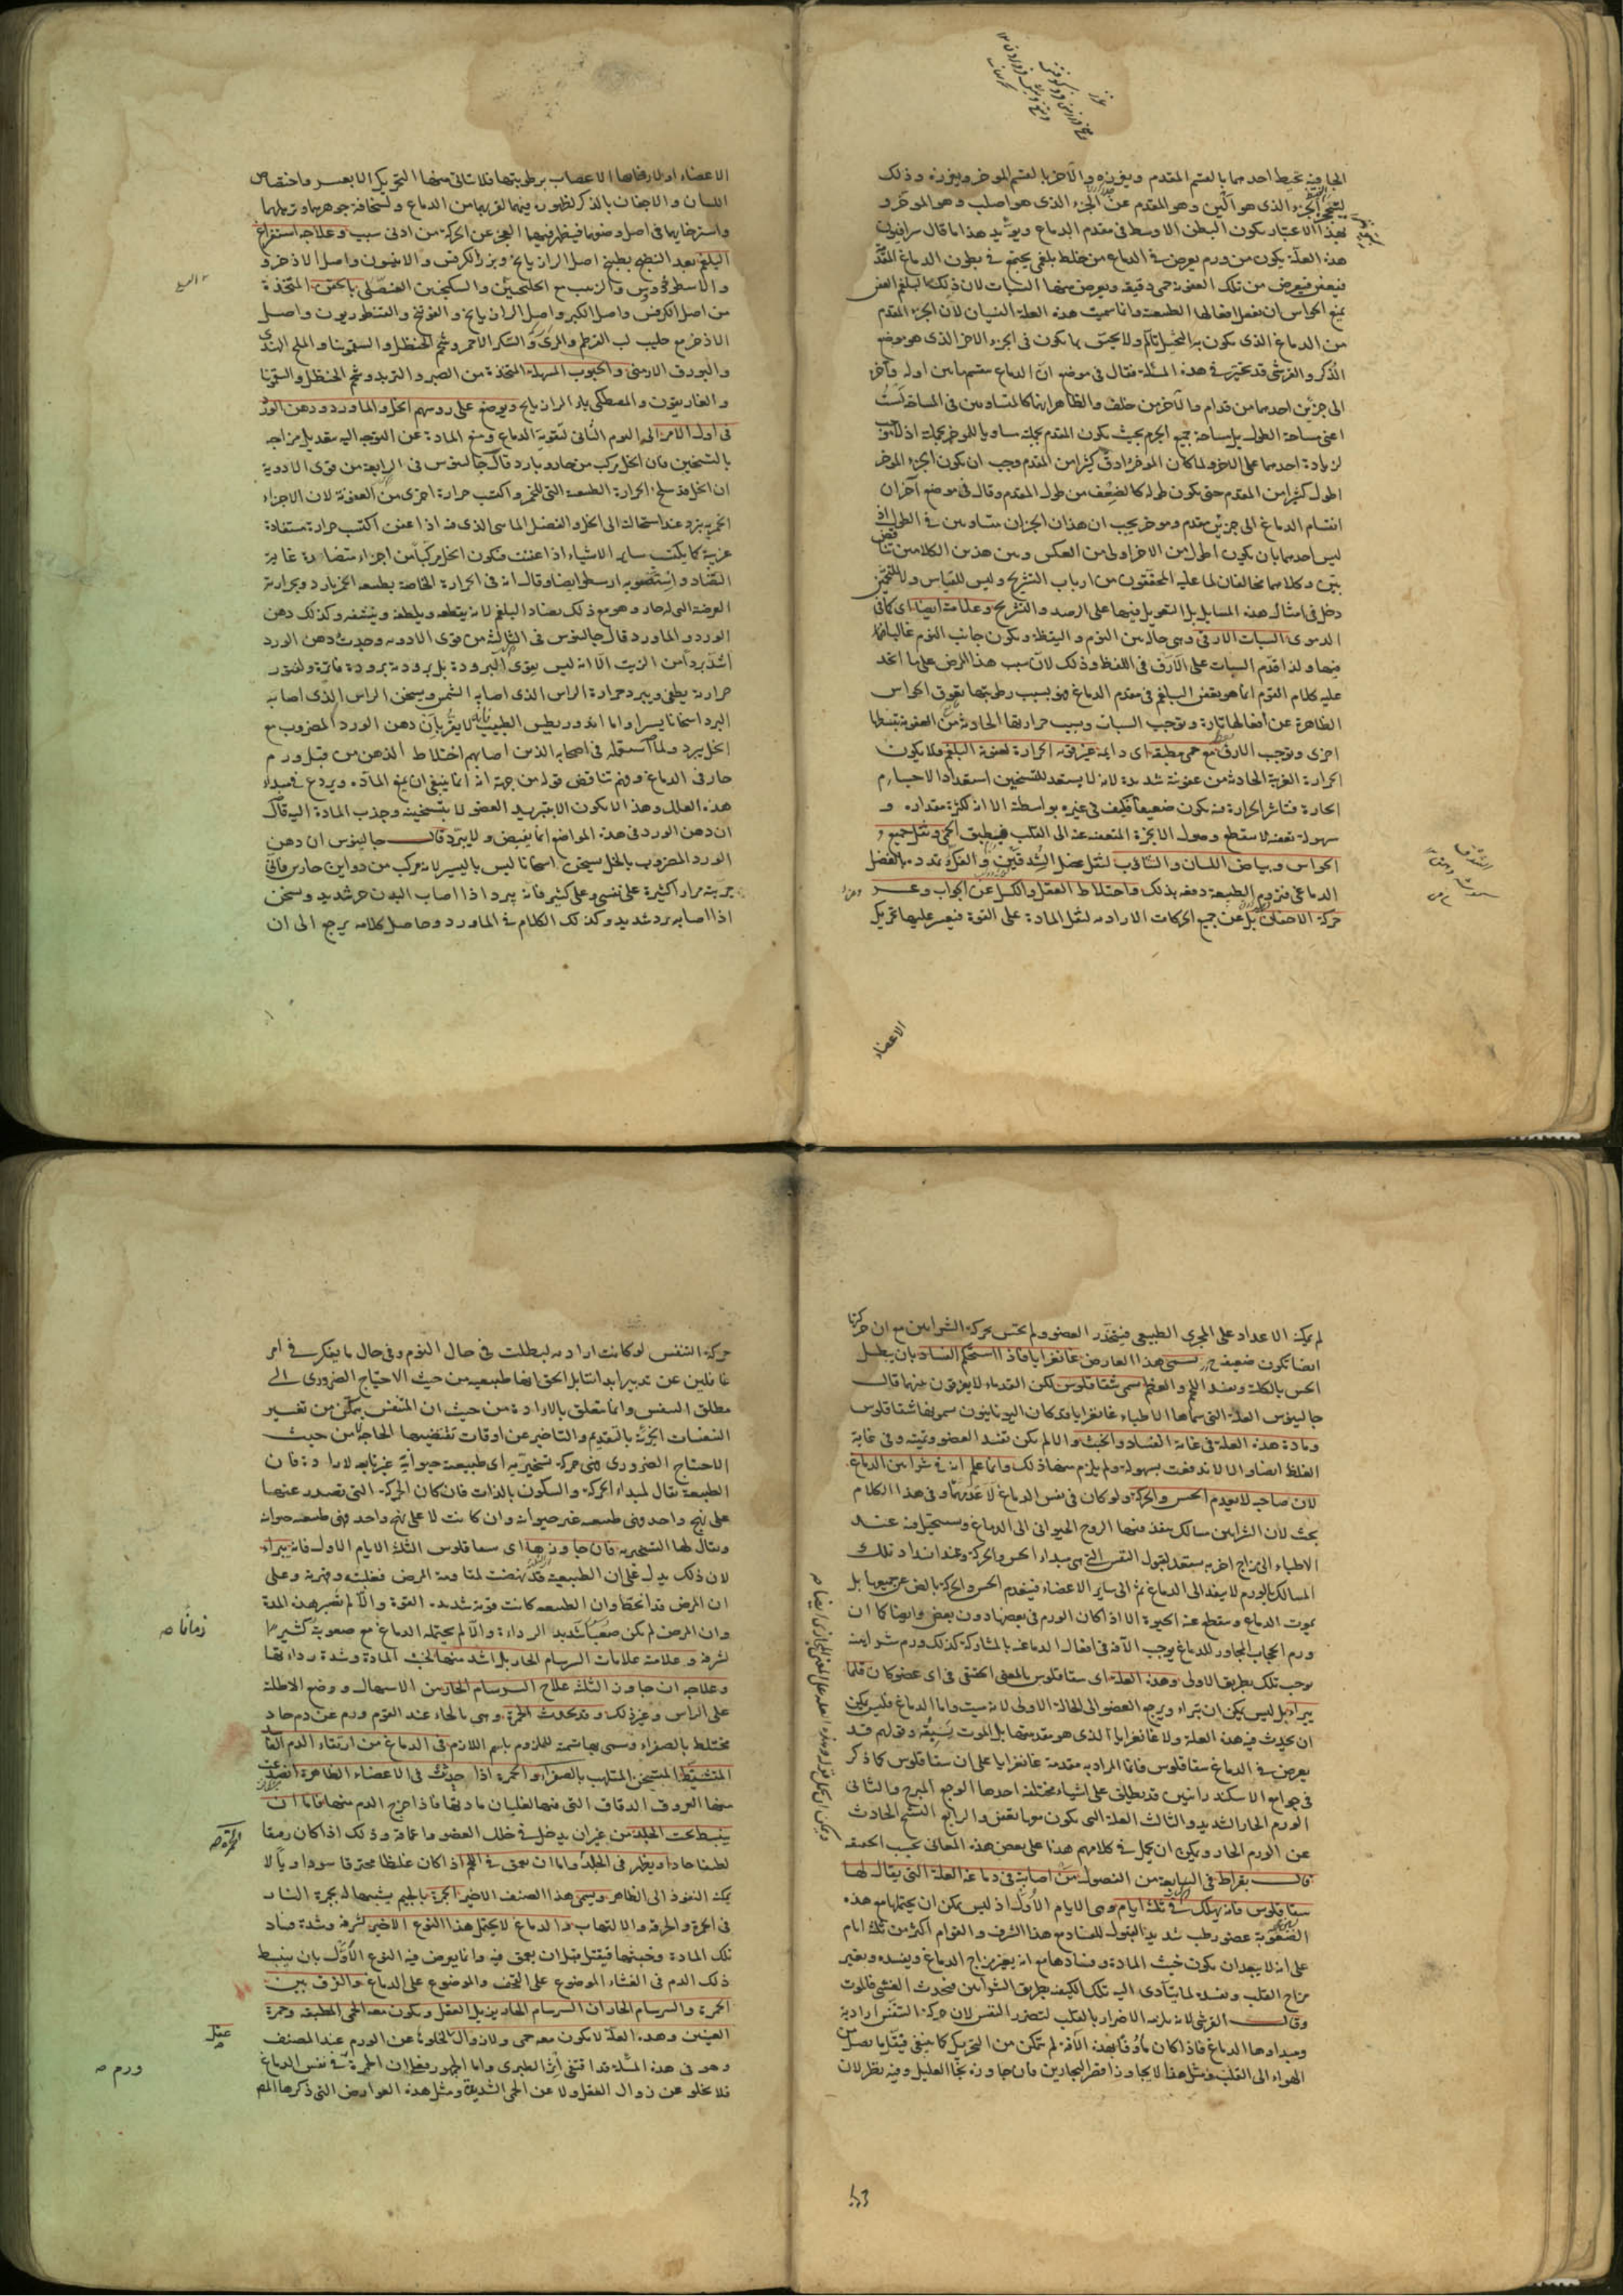 الجافية يحيط احدهما بالقسم المقدم ويفرزه والآخر بالقسم الموخر ويفرزه وذلك
الجزء الذى هو ألين وهو المقدم عن الجزء الذى هو اصلب وهو الموخر و
بهذا الاعتبار يكون البطن الاوسط فى مقدم الدماغ ويؤيد هذا ما قال سرافيون
هذه العلة يكون من ورم يعرض فى الدماغ من خلط بلغمى يجتمع فى بطون الدماغ المقدم
فيعفن فيعرض من تلك العفونة حمى دقيقة ويعرض منها السبات لان ذلك البلغم العفن
يمنع الحواس ان تفعل افعالها الطبيعية وانما سميت هذه العلة النسيان لان الجزء المقدم
من الدماغ الذى يكون به التخيل تألم ولا يحس بما يكون فى الجزء الاخر الذى هو موضع
الذكر والقرشى قد تحير فى هذه المسئلة فقال فى موضع ان الدماغ ينقسم مابين اوله وآخره
الى جزئين احدهما من قدام والآخر من خلف والظاهر انهما كالمتساويين فى المساحة لست
اعنى مساحة الطول بل مساحة جميع الجرم بحيث يكون المقدم بجملته مساويا للموخر بجملته اذ لا
لزيادة احدهما على الاخر ولما كان الموخر ادق كثيرا من المقدم وجب ان يكون الجزء الموخر
اطول كثيرا من المقدم حتى يكون طوله كالضعف من طول المقدم وقال فى موضع آخر ان
انقسام الدماغ الى جزئين مقدم وموخر يجب ان هذان الجزءان متساويين فى الطول اذ
ليس احدهما بان يكون اطول من الاخر اولى من العكس وبين هذين الكلامين تناقض
بين وكلاهما مخالفان لما عليه المحققون من ارباب التشريح وليس للقياس ولا للتخمين
دخل فى امثال هذه المسايل بل التعويل فيها على الرصد والتشريح وعلامته ايضا اى كما فى
الدموى السبات الارقى وهى حالة بين النوم واليقظة ويكون جانب النوم غالبا
فيها ولذا قدم السبات على الارق فى اللفظ وذلك لان سبب هذا المرض على ما اتحد
عليه كلام القوم انما هو بعفن البلغم فى مقدم الدماغ فهو بسبب رطوبتها يعوق الحواس
الظاهرة عن افعالها تارة ويوجب السبات وبسبب حرارتها الحادثة من العفونة تبسطها
اخرى ويوجب الارق مع حمى مطبقة اى دائمة غير قوية الحرارة لعفونة البلغم ولا يكون
الحرارة الغريبة الحادثة من عفونته شديدة لانه لا يستعد للتسخين استعداد الاجسام
الحارة فتاثر الحرارة فيه يكون ضعيفا فكيف فى غيره بواسطته الا انه لكثرة مقداره و
سهولة تعفنه لا ينقطع وصول الابخرة المتعفنة عنه الى القلب فيطبق الحمى وثقل جميع
الحواس وبياض اللسان والتثاؤب لثقل عضل الشدقين والفك وتمدده بالفضل
الدماغى فيروم الطبيعة دفعه بذلك واختلاط العقل والكسل عن الجواب وعسر
حركة الاجفان بل عن جميع الحركات الارادية لثقل المادة على القوة فيعسر عليها تحريك
الاعضاء
الاعضاء او لارخائها الاعصاب برطوبتها فلا تاتى منها التحريك الا بعسر واختصاص
اللسان والاجفان بالذكر لظهوره فيهما لقربهما من الدماغ ولسخافة جوهرهما وترهلهما
واسترخائهما فى اصل وضعهما فيظهر فيهما العجز عن الحركة من ادنى سبب وعلاجه استفراغ
البلغم بعد النضج بطبيخ اصل الرازيانج وبزر الكرفس والانيسون واصل الاذخر و
والاسطوخودوس والزبيب مع الجلنجبين والسكنجبين العنصلى بالحقن المتخذة
من اصل الكرفس واصل الكبر واصل الرازيانج والفوتنج والقنطوريون واصل
الاذخر مع حليب لب القرطم والمرى والسكر الاحمر وشحم الحنظل والسقمونيا والملح الهندى
والبورق الارمنى والحبوب المسهلة المتخذة من الصبر والتربد وشحم الحنظل والسقمونيا
والغاريقون والمصطكى بماء الرازيانج ويوضع على روسهم الخل والماورد ودهن الورد
فى اول الامر الى اليوم الثانى لتقوية الدماغ ومنع المادة عن التوجه اليه بتعديل مزاجه
بالتسخين فان الخل مركب من حار وبارد قال جالينوس فى الرابعة من قوى الادوية
ان الخل قد سلخ الحرارة الطبيعية التى للخمر واكتسب حرارة اخرى من العفونة لان الاجزاء
الخمرية تبرد عند استحالته الى الخل والفضل المائى الذى فيه اذا عفن اكتسب حرارة مستفادة
غريبة كما يكتسب ساير الاشياء اذا عفنت فيكون الخل مركبا من اجزاء متضادة غاية
التضاد واستصوبه ارسطو ايضا وقال انه فى الحرارة الخاصة بطبعه الخمر بارد وبحرارته
العرضية التى له حار وهو مع ذلك يضاد البلغم لانه يقطعه ويلطفه وينشفه وكذلك دهن
الورد والماورد قال جالينوس فى الثالثة من قوى الادوية وجدت دهن الورد
اشد بردا من الزيت الا انه ليس بقوى البرودة بل برودته برودة فاترة ولفتور
حرارته يطفى ويبرد حرارة الراس الذى اصابه الشمس ويسخن الراس الذى اصابه
البرد اسخانا يسيرا واما اندروريطس الطبيب فانه لا يقر بان دهن الورد المضروب مع
الخل يبرد ولما استعمله فى اصحابه الذين اصابهم اختلاط الذهن من قبل ورم
حار فى الدماغ وهم تناقض قوله من جهة انه انما ينبغى ان يمنع المادة ويردع فى مبداء
هذه العلل وهذا لا يكون الا بتبريد العضو لا بتسخينه وجذب المادة اليه قال
ان دهن الورد فى هذه المواضع انما يقبض ولا يبرد قال جالينوس ان دهن
الورد المضروب بالخل يسخن اسخانا ليس باليسير لانه مركب من دوائين حارين فانى
جربته مرارا كثيرة على نفسى وعلى كثير فانه يبرد اذا اصاب البدن حر شديد ويسخن
اذا اصابه برد شديد وكذلك الكلام فى الماورد وحاصل كلامه يرجع الى ان
لم يمكنه الاعداد على المجرى الطبيعى فيتخدر العضو ولم يحس بحركة الشرايين مع ان حركتها
ايضا تكون ضعيفة يسمى هذا العارض غانغرايا فاذا استحكم الفساد بان يبطل
الحس بالكلية ويفسد اللحم والعظم سمى شقاقلوس لكن القدماء لا يفرقون بينهما قال
جالينوس العلة التى سماها الاطباء غانغرايا وقد كان اليونانيون سموها شقاقلوس
ومادة هذه العلة فى غاية الفساد والخبث والا لم يكن تفسد العضو وتميته وفى غاية
الغلظ ايضا والا لاندفعت بسهولة ولم يلزم منها ذلك وانما علم انه فى شرايين الدماغ
لان صاحبه لا يعدم الحس والحركة ولو كان فى نفس الدماغ لاعدمهما وفى هذا الكلام
بحث لان الشرايين مسالك ينفذ فيها الروح الحيوانى الى الدماغ ويستحيل فيه عند
الاطباء الى مزاج اخر به يستعد لقبول النفس التى هى مبداء الحس والحركة وعند انسداد تلك
المسالك بالورم لا ينفذ الى الدماغ ثم الى ساير الاعضاء فينعدم الحس والحركة بالفعل عن جميعها بل
يموت الدماغ وينقطع عنه الحيوة الا اذا كان الورم فى بعضها دون بعض وايضا كما ان
ورم الحجاب المجاور للدماغ يوجب الآفة فى افعال الدماغ بالمشاركة كذلك ورم شرايينه
يوجب تلك بطريق الاولى وهذه العلة اى سقاقلوس بالمعنى الحقيقى فى اى عضو كان قلما
يبراء بل ليس يمكن ان تبراء ويرجع العضو الى الحالة الاولى لانه ميت واما الدماغ فليس يمكن
ان يحدث فيه هذه العلة ولا غانغرايا الذى هو مقدمتها بل الموت يسبقه وقولهم قد
يعرض فى الدماغ سقاقلوس فانما المراد به مقدمة غانغرايا على ان سقاقلوس كما ذكر
فى جوامع الاسكندرانيين قد يطلق على اشياء مختلفة احدها الوجع المبرح والثانى
الورم الحار الشديد والثالث العلة التى يكون معها يعفن والرابع التشنج الحادث
عن الورم الحار ويمكن ان يحمل فى كلامهم هذا على بعض هذه المعانى بحسب الحقيقة
قال بقراط فى السابعة من الفصول من اصابته فى دماغه العلة التى يقال لها
سقاقلوس فانه يهلك فى ثلثة ايام وهى الايام الاول اذ ليس يمكن ان يحتملها مع هذه
الصعوبة عضو رطب شديد القبول للفساد مع هذا الشرف والقوام اكثر من ثلثة ايام
على انه لا يبعد ان يكون خبث المادة وفسادها مع انه يغير مزاج الدماغ ويفسده ويغير
مزاج القلب ويفسده لما يتأدى اليه تلك الكيفية بطريق الشرايين فيحدث الغشى فالموت
وقال القرشى لانه يلزمه الاضرار بالقلب لتضرر النفس لان حركة التنفس ارادية
ومبداءها الدماغ فاذا كان مأوفا بهذه الآفة لم يتمكن من التحريك كما ينبغى فيقل ما يصل من
الهواء الى القلب ومثل هذا لا يجاوز اقصر البحارين فان جاوزه نجا العليل وفيه نظر لان
حركة التنفس لو كانت ارادية لبطلت فى حال النوم وفى حال ما يفكر فى امر
غافلين عن تدبير ابدانا بل الحق انها طبيعية من حيث الاحتياج الضرورى الى
مطلق التنفس وانما تتعلق بالارادة من حيث ان المتنفس يتمكن من تغيير
التنفسات الجزئية بالتقديم والتاخير عن اوقات تقتضيها الحاجة من حيث
الاحتياج الضرورى فهى حركة تسخيرية اى طبيعية حيوانية غير تابعة لارادة فان
الطبيعة تقال لمبداء الحركة والسكون بالذات فان كان الحركة التى تصدر عنها
على نهج واحد فهى طبيعية غير حيوانية وان كانت لا على نهج واحد فهى طبيعية حيوانية
ويقال لها التسخيرية فان جاوزها اى سقاقلوس الثلثة الايام الاول فانه يبراء
لان ذلك يدل على ان الطبيعة قد نهضت لمقاومة المرض فغلبته وقهرته وعلى
ان المرض قد انحط وان الطبيعة كانت قوية شديدة القوة والا لم تصبر هذه المدة
وان المرض لم يكن صعبا شديد الرداءة والا لم يحتمله الدماغ مع صعوبته كثيرا
لشرفه وعلامته علامات السرسام الحار بل اشد منها لخبث المادة وشدة رداءتها
وعلاجه ان جاوز الثلث علاج السرسام الحار من الاسهال ووضع الاطلية
على الراس وغير ذلك وقد يحدث الحمرة وهى بالحاء عند القوم ورم عن دم حاد
مختلط بالصفراء وتسمى بها تسمية للملزوم باسم اللازم فى الدماغ من ارتقاء الدم
المتشيط المتسخن الملتهب بالصفراء والحمرة اذا حدثت فى الاعضاء الظاهرة انصدعت
منها العروق الدقاق التى فيها لغليان مادتها فاذا خرج الدم منها فاما ان
ينبسط تحت الجلد من غير ان يدخل فى خلل العضو وذلك اذا كان رقيقا
لطيفا حادا ويظهر فى الجلد واما ان يعمق فى اللحم اذا كان غليظا محترقا سوداويا لا
يمكنه النفوذ الى الظاهر ويسمى هذا الصنف الاخير الجمرة بالجيم يشبهها له بجمرة النار
فى الحمرة والحرقة والالتهاب والدماغ لا يحتمل هذا النوع الاخير لشرفه وشدة فساد
تلك المادة وخبثها فيقتل قبل ان يعمق فيه وانما يعرض فيه النوع الاول بان ينبسط
ذلك الدم فى الغشاء الموضوع على القحف والموضوع على الدماغ والفرق بين
الحمرة والسرسام الحار ان السرسام الحار يزيل العقل ويكون معه الحمى المطبقة وحمرة
العينين وهذه العلة لا يكون معه حمى ولا زوال عقل لخلوه عن الورم عند المصنف
وهو فى هذه المسئلة قد اقتفى اثر الطبرى واما الجمهور فعلى ان الحمرة فى نفس الدماغ
فلا يخلو عن زوال العقل ولا عن الحمى الشديدة ومثل هذه العوارض التى ذكرها المصنف
زمانا صه
ورم صه